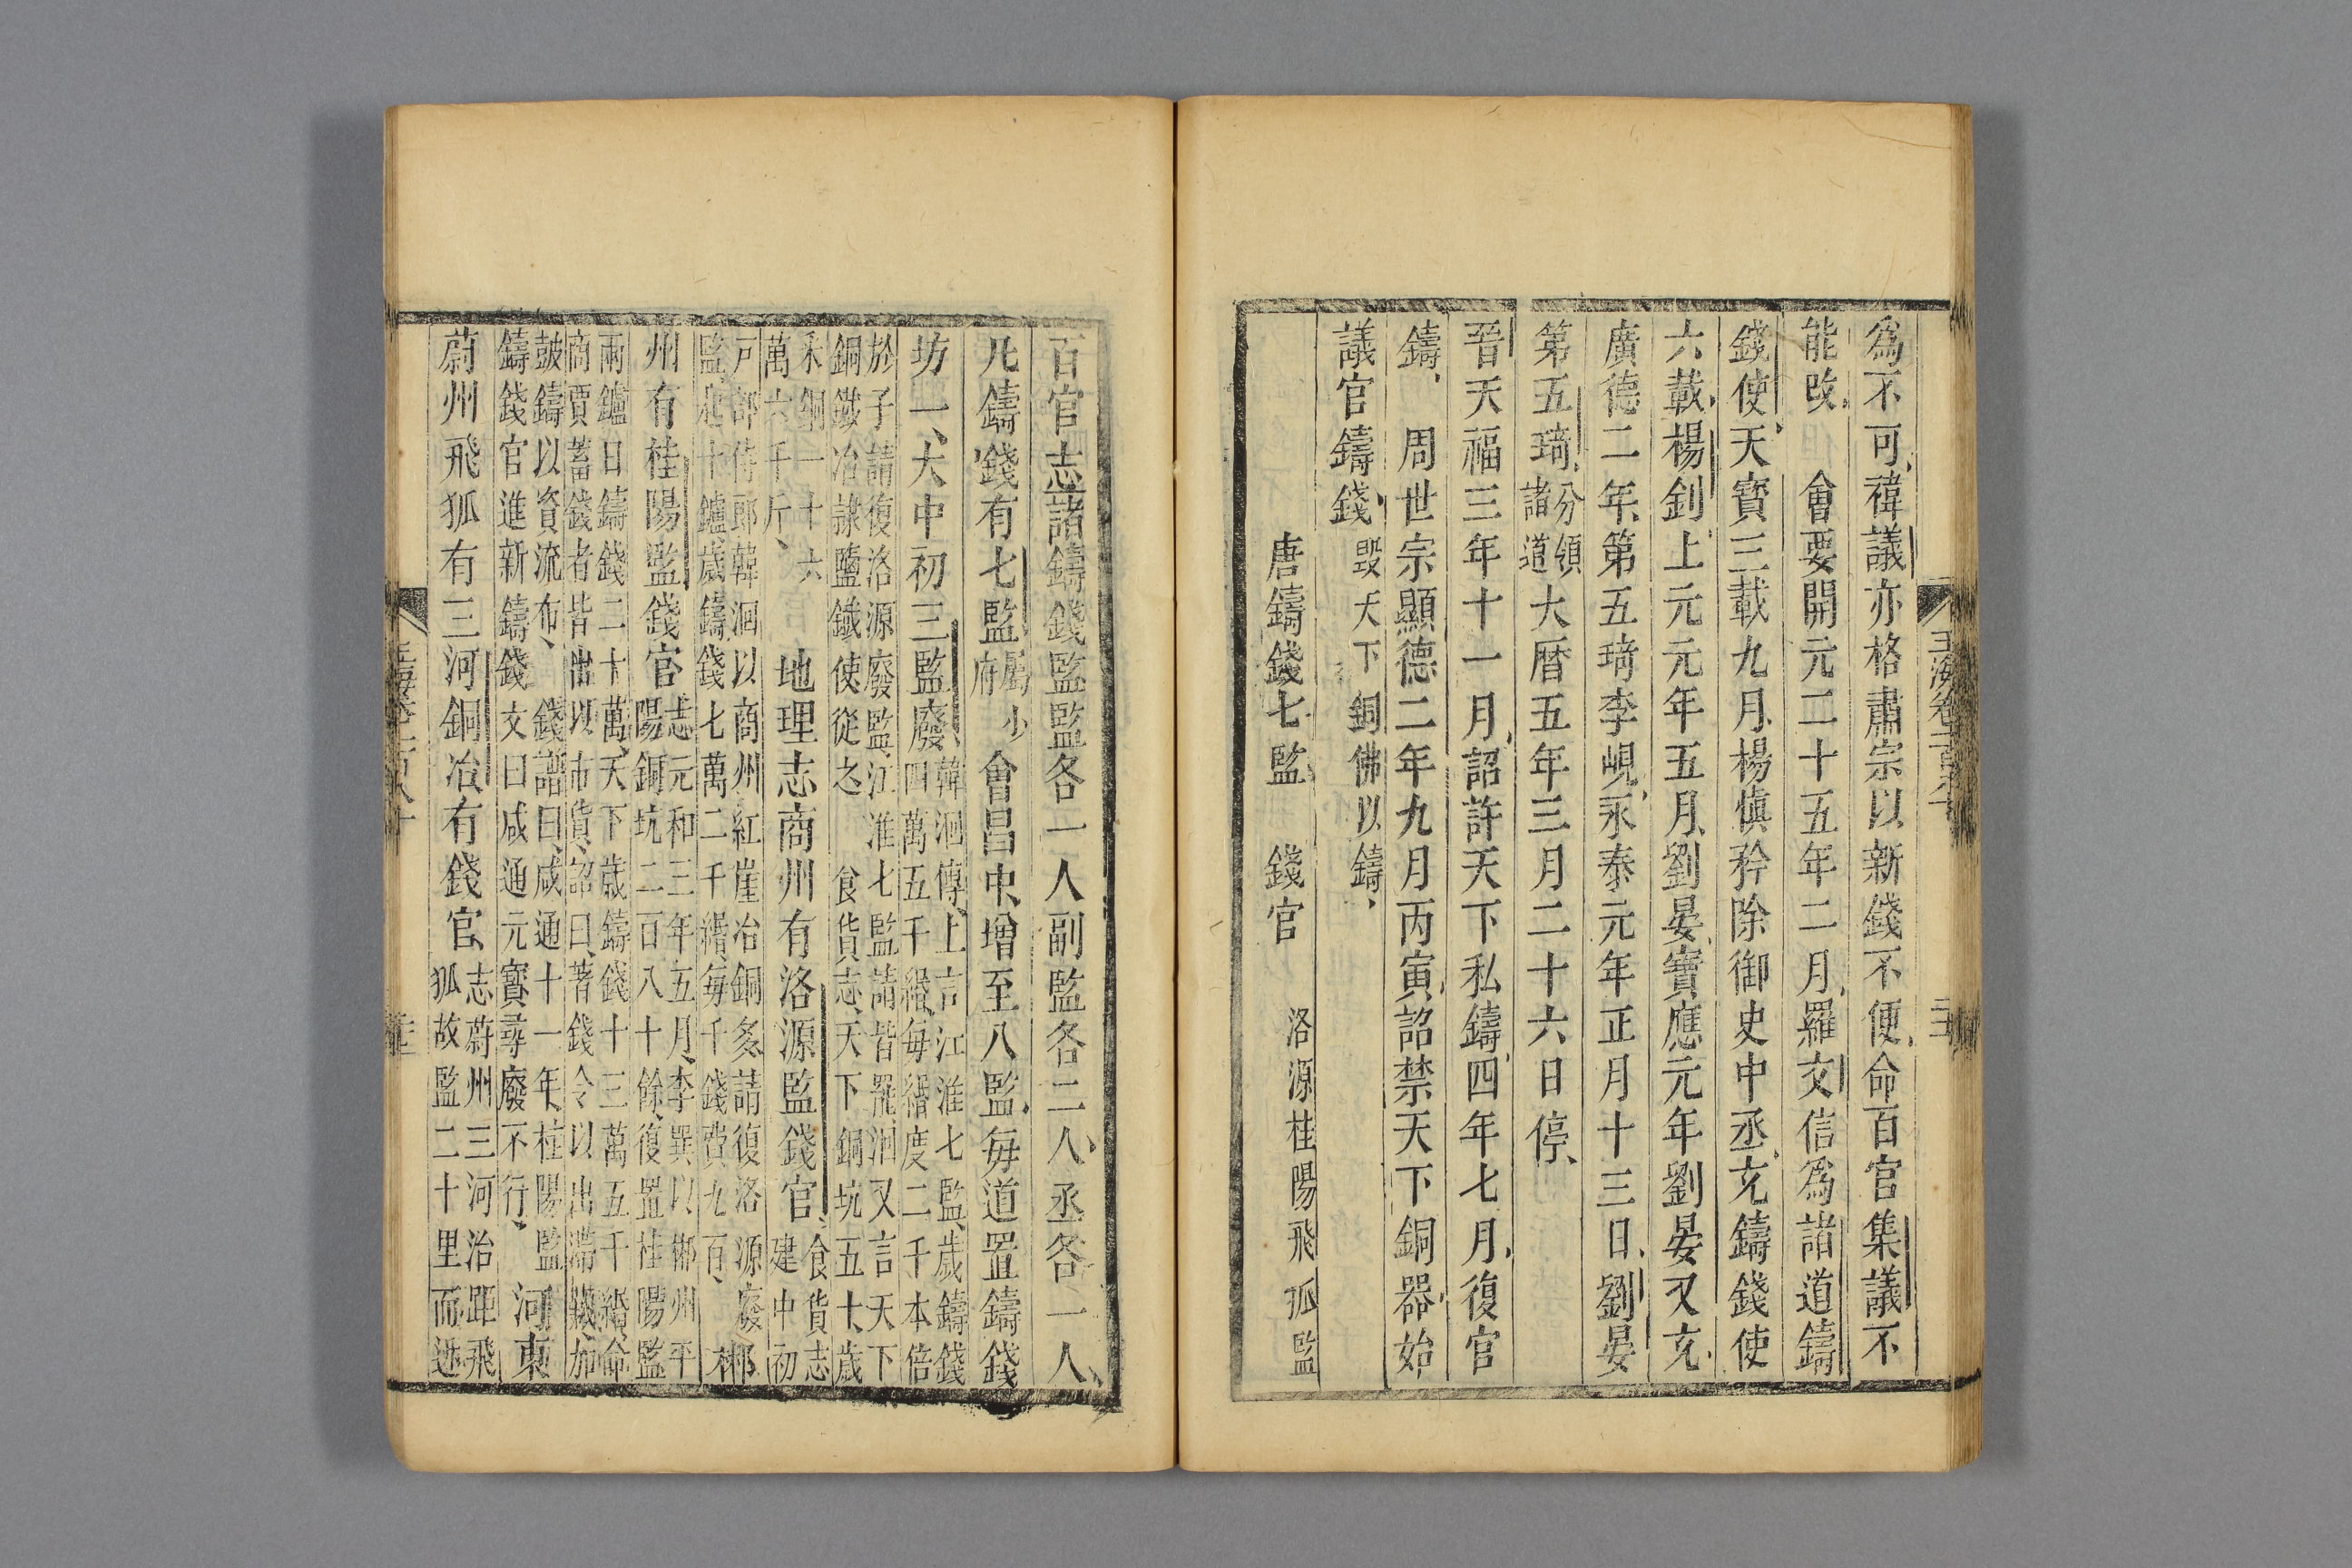 為不可禕議亦格肅宗以新錢不便命百官集議不
能改 會要開元二十五年二月羅文信為諸道鑄
錢使天寶三載九月楊慎矜除御史中丞充鑄錢使
六載楊釗上元元年五月劉晏寶應元年劉晏又充
廣德二年第五琦李峴永泰元年正月十三日劉晏
第五琦分領諸道大曆五年三月二十六日停
晉天福三年十一月詔許天下私鑄四年七月復官
鑄 周世宗顯德二年九月丙寅詔禁天下銅器始
議官鑄錢毀天下銅佛以鑄
唐鑄錢七監 錢官 洛源桂陽飛狐監
百官志諸鑄錢監監各一人副監各二人丞各一人
凡鑄錢有七監屬少府會昌中增至八監每道置鑄錢
坊一大中初三監廢韓洄傳上言江淮七監歲鑄錢
四萬五千緡每緡度二千本倍
於子請復洛源廢監江淮七監請皆罷洄又言天下
銅鐵冶隸鹽鐵使從之 食貨志天下銅坑五十歲
采銅一十六
萬六千斤 地理志商州有洛源監錢官食貨志
建中初
戶部侍郎韓洄以商州紅崖冶銅多請復洛源廢
監起十鑪歲鑄錢七萬二千緡每千錢費九百 郴
州有桂陽監錢官志元和三年五月李巽以郴州平
陽銅坑二百八十餘復置桂陽監
兩鑪日鑄錢二十萬天下歲鑄錢十三萬五千緡命
商賈蓄錢者皆出以市貨詔曰著錢令以出滯藏加
鼓鑄以資流布 錢譜曰咸通十一年桂陽監
鑄錢官進新鑄錢文曰咸通元寶尋廢不行 河東
蔚州飛狐有三河銅冶有錢官志蔚州三河治距飛
狐故監二十里而近